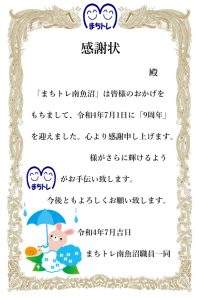 まちトレ
感謝状
殿
「まちトレ南魚沼」は皆様のおかげを
もちまして、令和4年7月1日に「9周年」
を迎えました。心より感謝申し上げます。
様がさらに輝けるよう
まちトレ
がお手伝い致します。
今後ともよろしくお願い致します。
令和4年7月吉日
まちトレ南魚沼職員一同